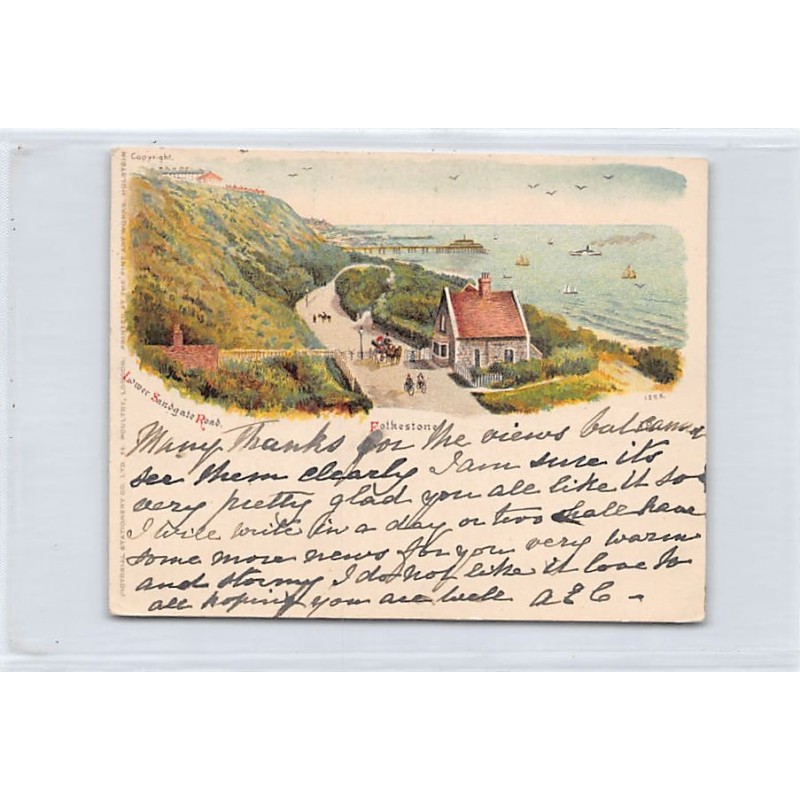 Copyright.
PICTORIAL STATIONERY CO. LTD. 11 POULTRY, LONDON. PRINTED AT THE FINE ART WORKS. HOLSTEIN
1205.
Lower Sandgate Road.
Folkestone
Many Thanks for the views but cannot
see them clearly I am sure its
very pretty glad you all like it so
I will write in a day or two shall have
some more news for you very warm
and stormy I do not like it love to
all hoping you are well A E C -